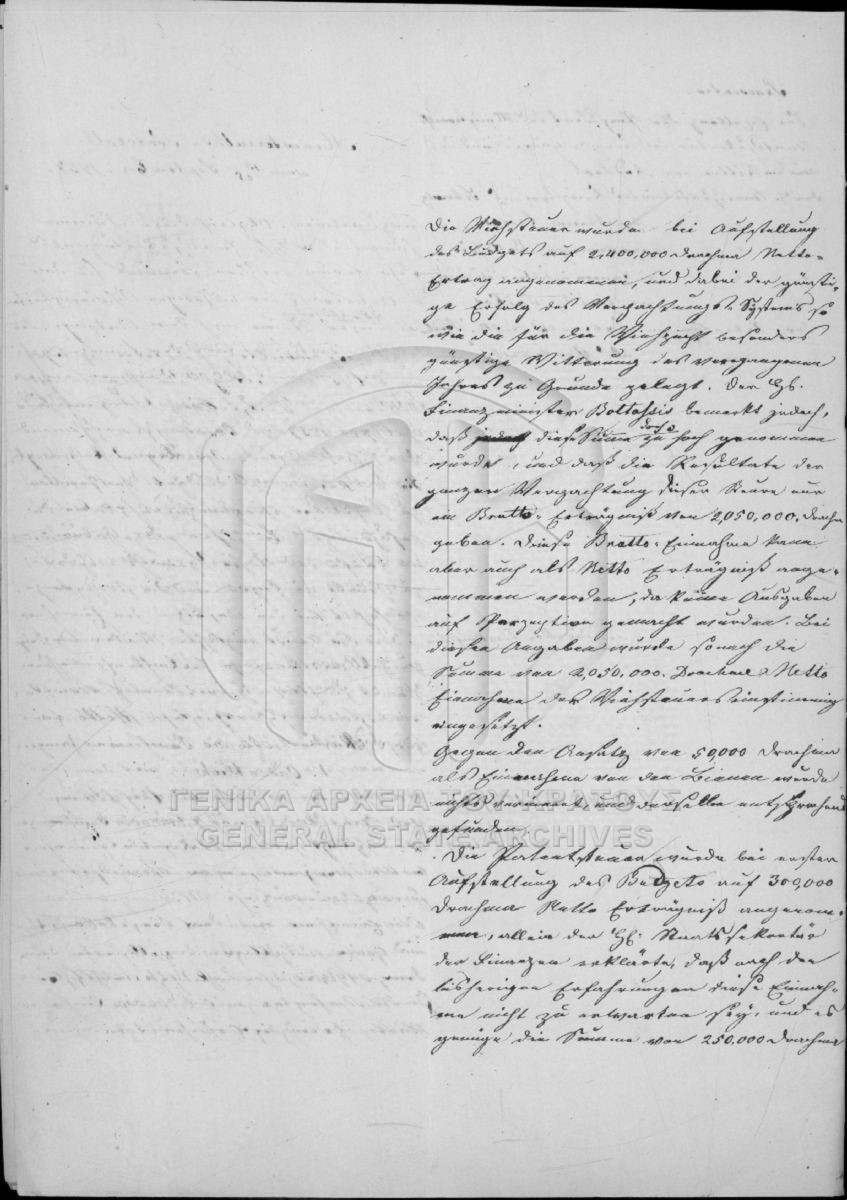 Die Viehsteuer wurde bei Aufstellung
des Budgets auf 2,400,000 Drachma Netto-
Ertrag angenommen, und dabei der günsti-
ge Erfolg des Verpachtungs-Systems so
wie die für die Viehzucht besonders
günstige Witterung des vergangenen
Jahres zu Grunde gelegt. Der H.
Finanzminister Bottassis bemerkt jedoch,
daß diese Summe doch zu hoch genommen
wurde, und daß die Resultate der
ganzen Verpachtung dieser Steuer nur
ein Brutto-Erträgniß von 2,050,000. Drachm
geben. Diese Brutto-Einnahme kann
aber auch als Netto Erträgniß ange-
nommen werden, da keine Ausgaben
auf Perzeption gemacht wurden. Bei
diesen Angaben wurde sonach die
Summe von 2,050,000. Drachmen Netto
Einnahme der Viehsteuer einstimmig
eingesetzt.
Gegen den Ansatz von 50,000 Drachma
als Einnahme von den Bienen wurde
nichts erinnert, und derselbe entsprechend
gefunden.
Die Patentsteuer wurde bei erster
Aufstellung des Budgets auf 300,000
Drachma Netto Erträgniß angenom-
men, allein der H. Staatssekretär
der Finanzen erklärte, daß nach den
bisherigen Erfahrungen diese Einnah-
me nicht zu erwarten sey, und es
genüge die Summe von 250,000 Drachma
ΓΕΝΙΚΑ ΑΡΧΕΙΑ ΤΟΥ ΚΡΑΤΟΥΣ
GENERAL STATE ARCHIVES